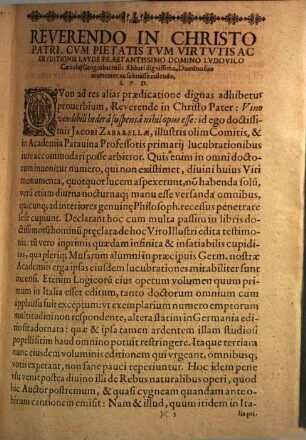 REVERENDO IN CHRISTO
PATRI, CVM PIETATIS TVM VIRTVTIS AC
ERVDITIONIS LAVDE PRÆSTANTISSIMO DOMINO LVDOVICO
Abbati dignissimo, Domino suo
colendo,
S. P. D.
QVod ad res alias prædicatione dignas adhibetur
prouerbium, Reverende in Christo Pater: Vino
vendibili hedera suspensa nihil opus esse: id ego doctissi-
mis JACOBI ZABARELLÆ, illustris olim Comitis, & in
Academia Patauina Professoris primarij lucubrationibus
iure accommodari posse arbitror. Quis enim in omni docto-
rum inuenitur numero, qui non existimet, diuini huius Viri
monumenta, quotquot lucem aspexerunt, nō habenda solū,
verū etiam diurna nocturnaq; manu esse versanda omnibus,
quicunq; ad interiores genuinę Philosoph. recessus penetrare
sese cupiunt. Declarant hoc cum multa passim in libris doc-
tissimorū hominū pręclara de hoc Viro Illustri edita testimo-
nia: tū vero inprimis quædam infinita & insatiabilis cupidi-
tas, qua pleriq; Musarum alumni in præcipuis Germ. nostræ
Academiis erga ipsas eiusdem lucubrationes mirabiliter sunt
incensi. Etenim Logicorū eius operum volumen quum pri-
mum in Italia esset editum, tanto doctorum omnium cum
applausu suit exceptum: vt exemplarium numero emptorum
multitudini non respondente, altera statim in Germania edi-
tio sit adornata: quæ & ipsa tamen ardentem illam studiosi
popelli sitim haud omnino potuit restringere. Itaque tertiam
nunc eiusdem voluminis editionem qui vrgeant, omnibusq;
votis experant, non sane pauci reperiuntur. Hoc idem pene
vsu venit postea diuino illi de Rebus naturalibus operi, quod
hic Auctor postremum, & quasi cygneam quandam ante o-
bitum cantionem emisit: Nam & illud, quum itidem in Ita-
):( 3 lia pri-